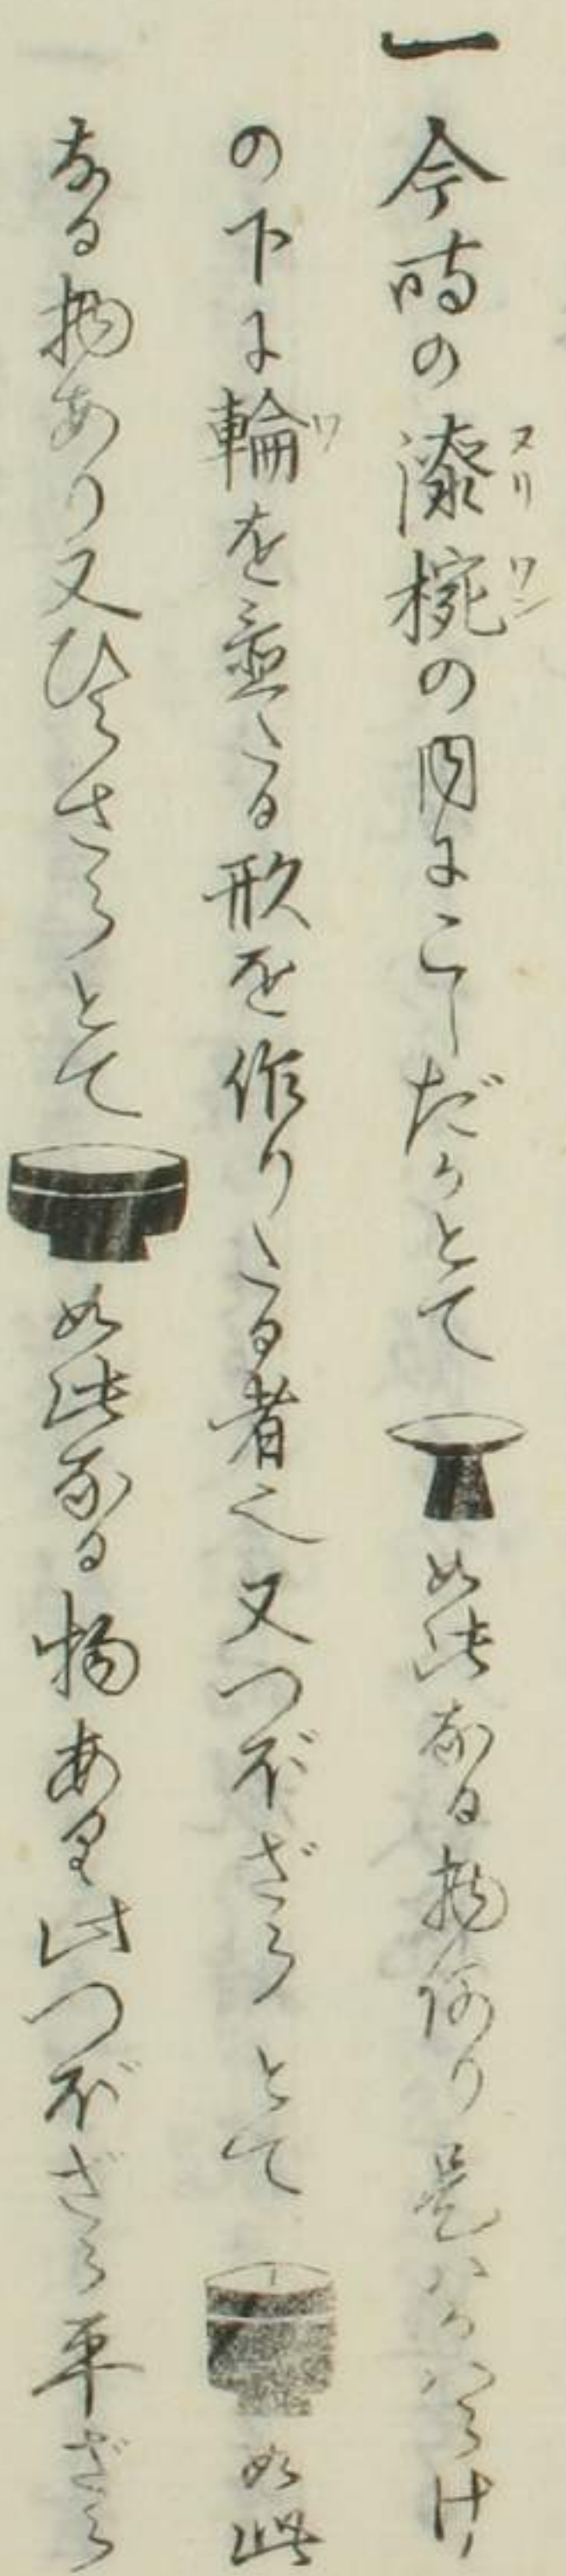 一今時の漆椀の内にこしだかとて如此なる物有り是ハかハらけ
の下に輪を置たる形を作りたる者也又つぼざらとて如此
なる物あり又ひらさらとて如此なる物あり此つぼざら平ざら